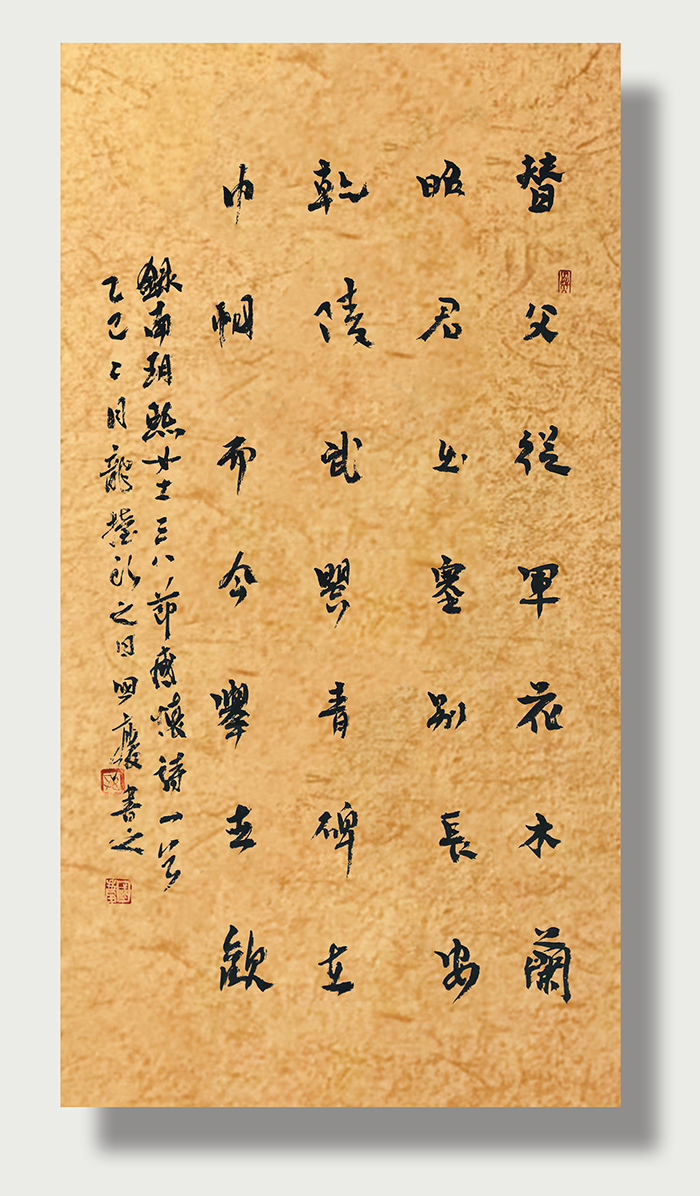 替父從軍花木蘭
昭君出塞別長安
乾陵武曌青碑在
巾帼而今舉世歡
錄南玥熙女士三八節感懷詩一首
乙巳二月龍抬頭之日 慶書之